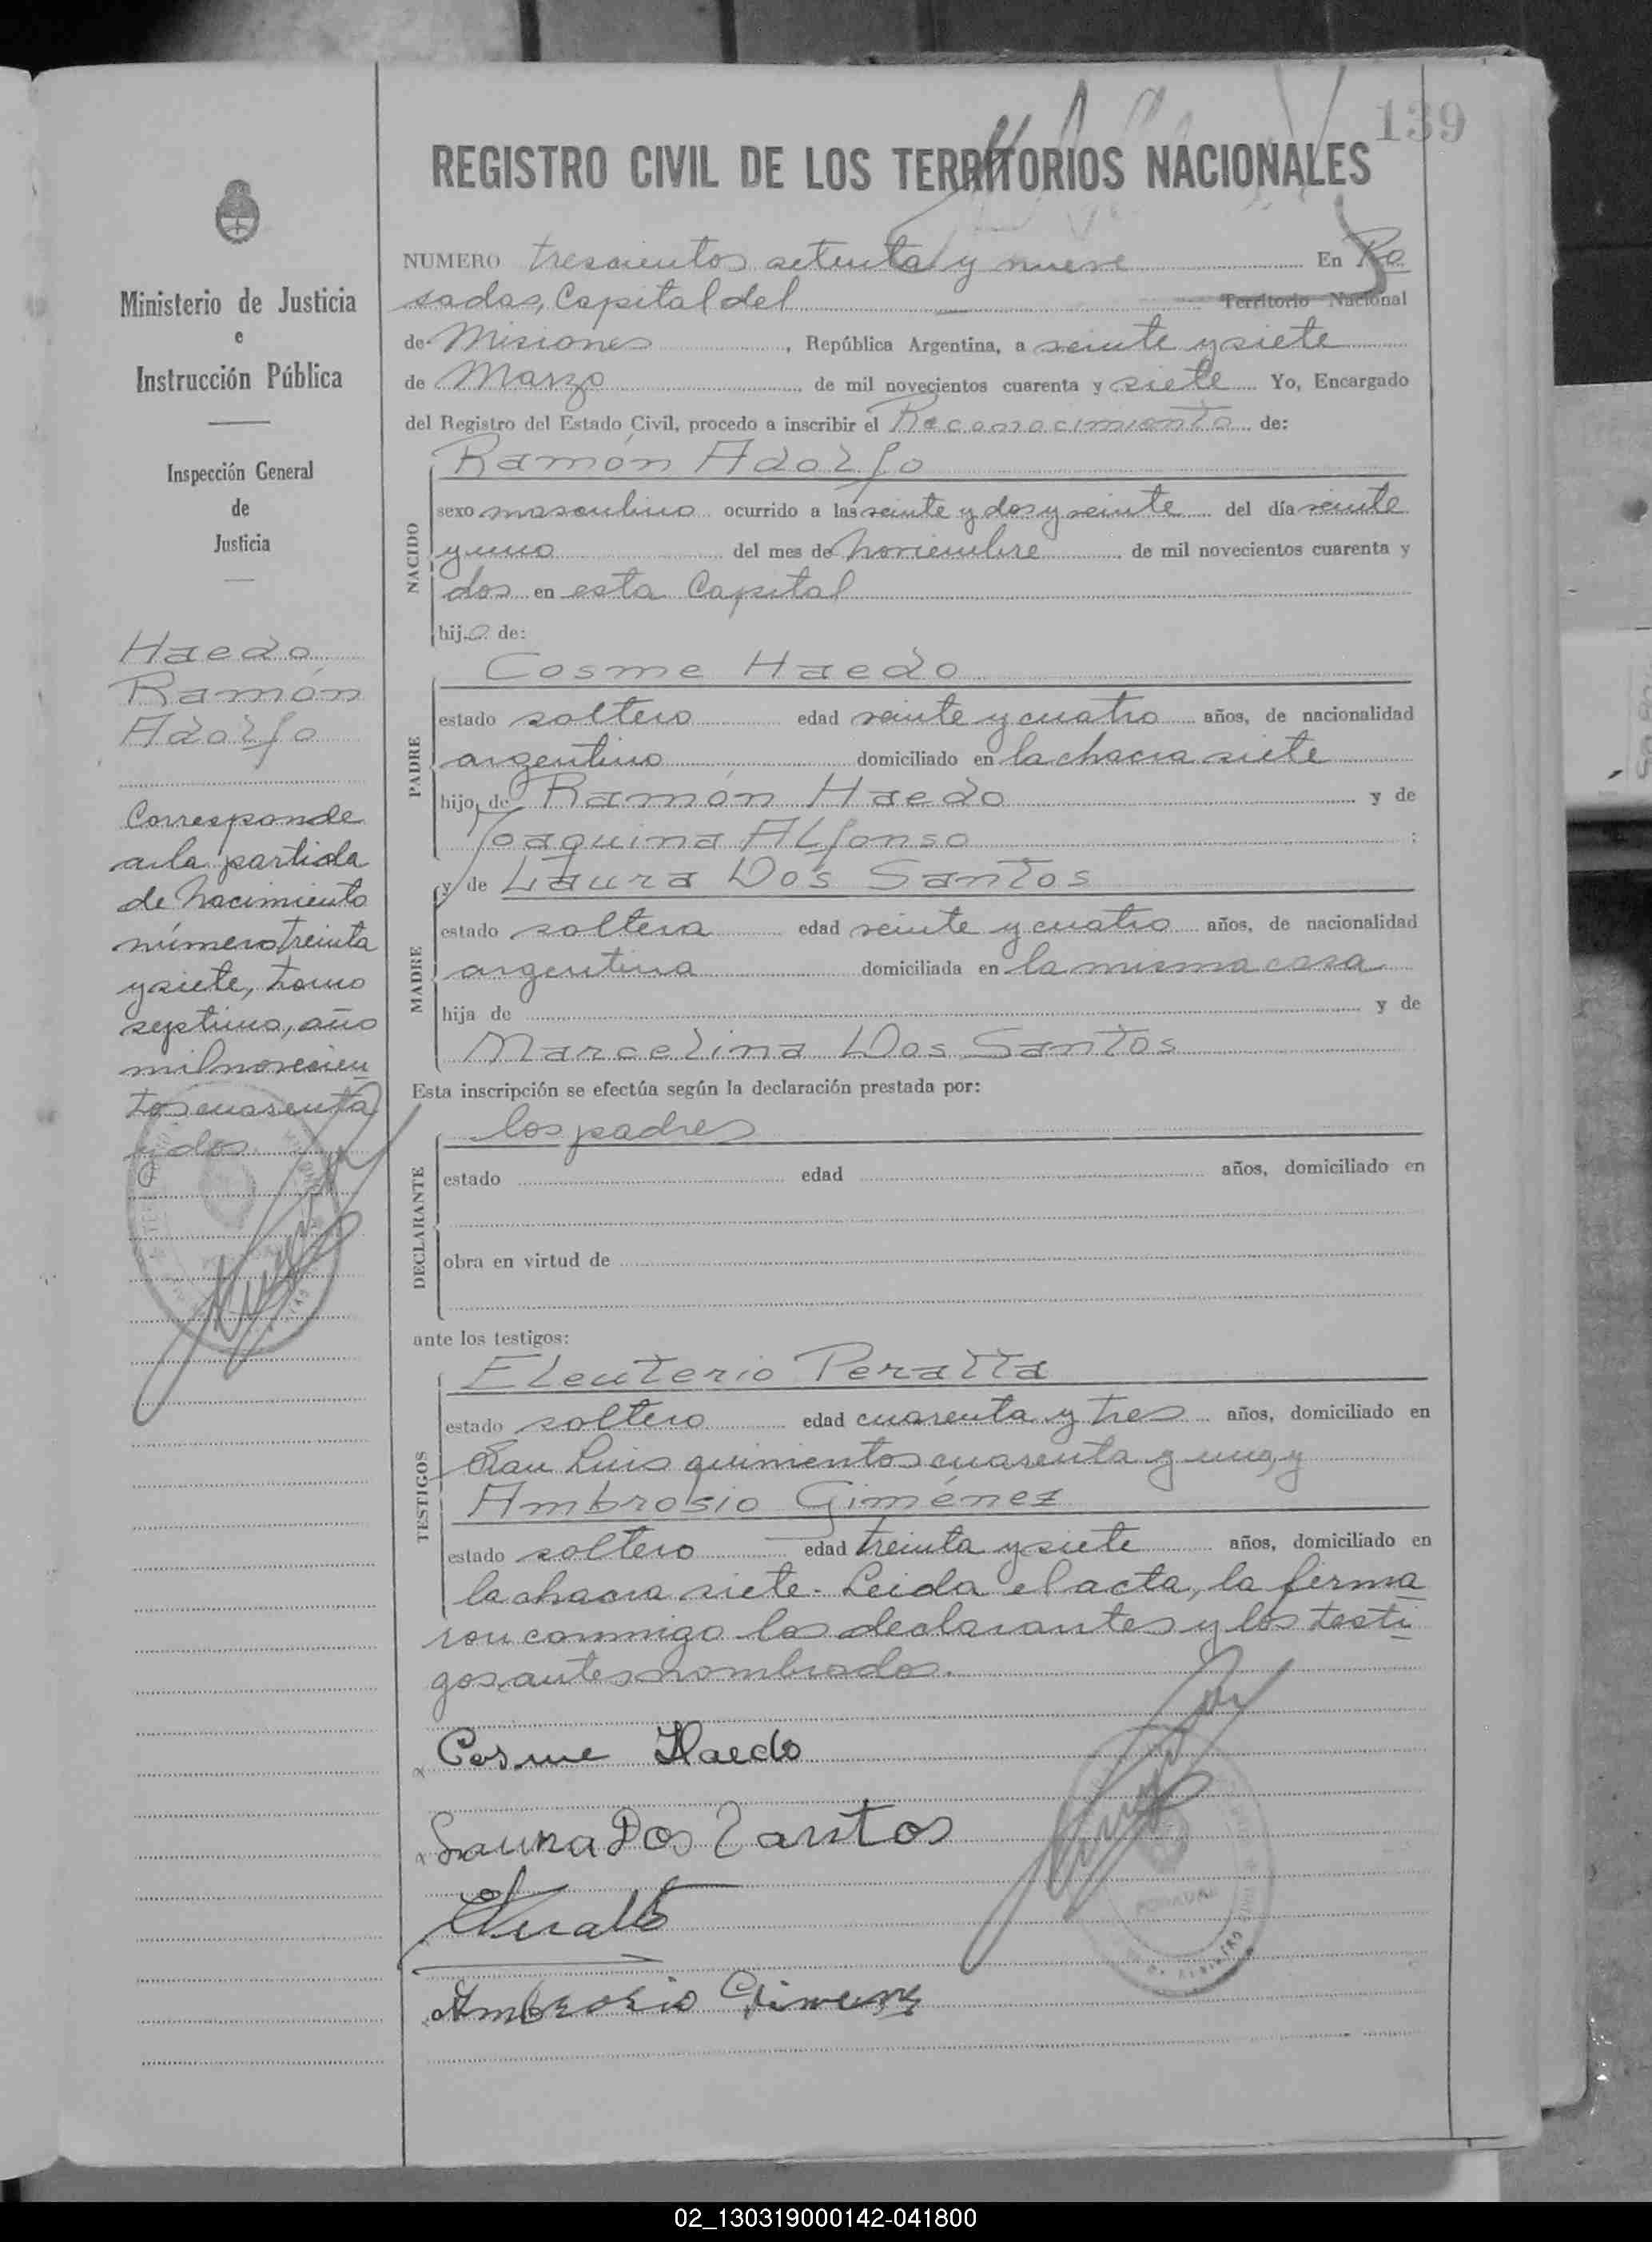 139
REGISTRO CIVIL DE LOS TERRITORIOS NACIONALES
Ministerio de Justicia
e
Instrucción Pública
Inspección General
de
Justicia
Haedo
Ramón
Adolfo
Corresponde
a la partida
de Nacimiento
número treinta
y siete, tomo
septimo, año
mil novecien
tos cuarenta
y dos
NUMERO trescientos setenta y nueve En Po
sadas, Capital del Territorio Nacional
de Misiones, República Argentina, a veinte y siete
de Marzo de mil novecientos cuarenta y siete Yo, Encargado
del Registro del Estado Civil, procedo a inscribir el Reconocimiento de:
NACIDO
Ramón Adolfo
sexo masculino ocurrido a las veinte y dos y veinte del día veinte
y uno del mes de Noviembre de mil novecientos cuarenta y
dos en esta Capital
hijo de:
PADRE
Cosme Haedo
estado soltero edad veinte y cuatro años, de nacionalidad
argentino domiciliado en la chacra siete
hijo de Ramón Haedo y de
Joaquina Alfonso :
MADRE
y de Laura Dos Santos
estado soltera edad veinte y cuatro años, de nacionalidad
argentina domiciliada en la misma casa
hija de y de
Marcelina Dos Santos
Esta inscripción se efectúa según la declaración prestada por:
DECLARANTE
los padres
estado edad años, domiciliado en
obra en virtud de
ante los testigos:
TESTIGOS
Eleuterio Peralta
estado soltero edad cuarenta y tres años, domiciliado en
San Luis quinientos cuarenta y uno, y
Ambrosio Giménez
estado soltero edad treinta y siete años, domiciliado en
la chacra siete. Leida el acta, la firma
ron conmigo los declarantes y los testi
gos antes nombrados.
Cosme Haedo
Laura Dos Santos
EPeralta
Ambrosio Gimenez
POSADAS
02_130319000142-041800